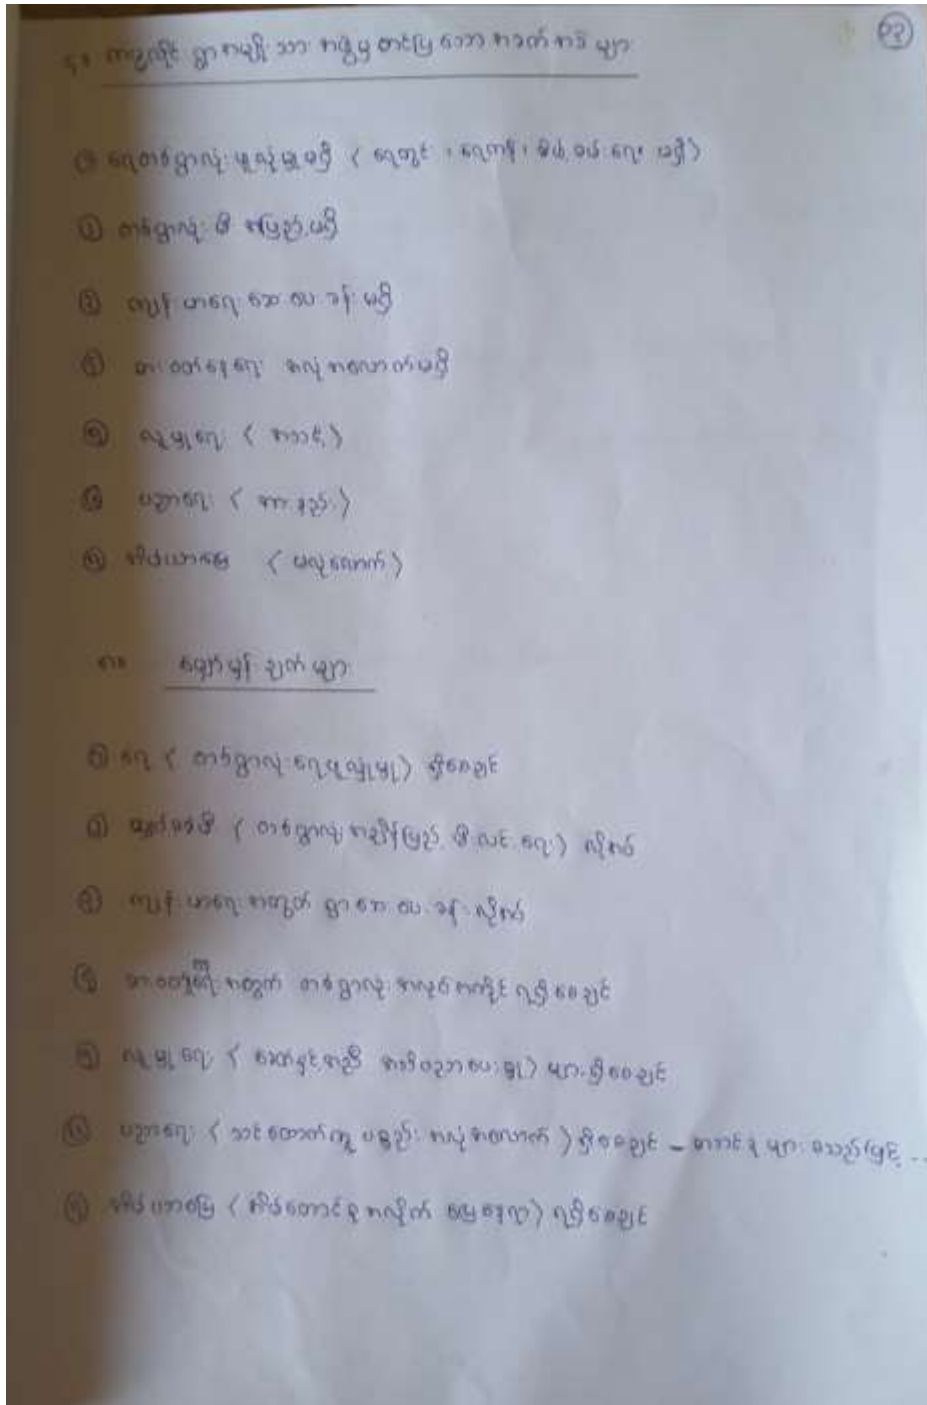 ၁၃
၄။ ရွာ အမျိုးသား အဖွဲ့မှ တင်ပြသော အခက်အခဲများ
၁ ရေတစ်ရွာလုံးမှုလုံမှုမရှိ ( ရေတွင်း ၊ ရေကန် ၊ ရေ မရှိ )
၂ တစ်ရွာလုံး မီး အပြည့်မရှိ
၃ ကျန်းမာရေး ဆေးပေးခန်း မရှိ
၄ စားဝတ်နေရေး အလုံအလောက်မရှိ
၅ လူမှုရေး ( အသင့် )
၆ ပညာရေး ( အားနည်း )
၇ အိမ်ယာမြေ ( မလုံလောက် )
၅။ မျှော်မှန်းချက်များ
၁ ရေ ( တစ်ရွာလုံး ရေမှုလုံမှု ) ရှိစေချင်
၂ မီး ( တစ်ရွာလုံး အချိန်ပြည့် မီးလင်းရေး ) လိုအပ်
၃ ကျန်းမာရေးအတွက် ရွာဆေးပေးခန်း လိုအပ်
၄ အတွက် တစ်ရွာလုံး အလုပ်အကိုင် ရရှိစေချင်
၅ လူမှုရေး ( ခေတ်နှင့်အညီ အသိပညာပေးမှု ) များ ရှိစေချင်
၆ ပညာရေး ( သင်ထောက်ကူ ပစ္စည်း အလုံအလောက် ) ရှိစေချင် –
၇ အိမ်ယာမြေ ( အိမ်ထောင်စုအလိုက် မြေနေရာ ) ရရှိစေချင်